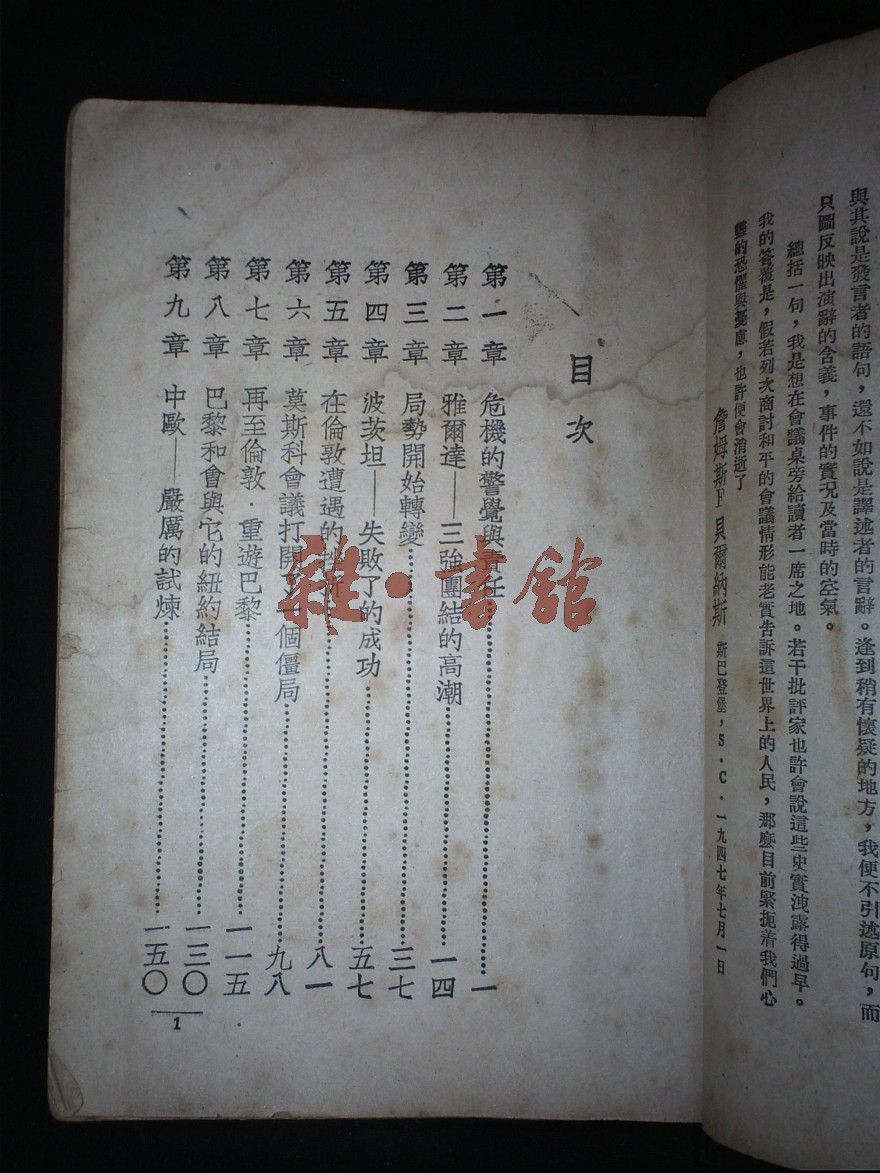 與其說是發言者的語句，還不如說是譯述者的言辭。逢到稍有懷疑的地方，我便不引述原句，而
只圖反映出演辭的含義，事件的實況及當時的空氣。
總括一句，我是想在會議桌旁給讀者一席之地。若干批評家也許會說這些史實洩露得過早。
我的答覆是，假若列次商討和平的會議情形能老實告訴這世界上的人民，那麼目前緊扼着我們心
靈的恐懼與憂慮，也許便會消逝了
詹姆斯F貝爾納斯 斯巴登堡，S．C．一九四七年七月一日
目次
第一章 危機的警覺與責任……一
第二章 雅爾達——三強團結的高潮……一四
第三章 局勢開始轉變……三七
第四章 波茨坦——失敗了的成功……五七
第五章 在倫敦遭遇的挫折……八一
第六章 莫斯科會議打開了一個僵局……九八
第七章 再至倫敦．重遊巴黎……一一五
第八章 巴黎和會與它的紐約結局……一三〇
第九章 中歐——嚴厲的試煉……一五〇
1
雜·書館